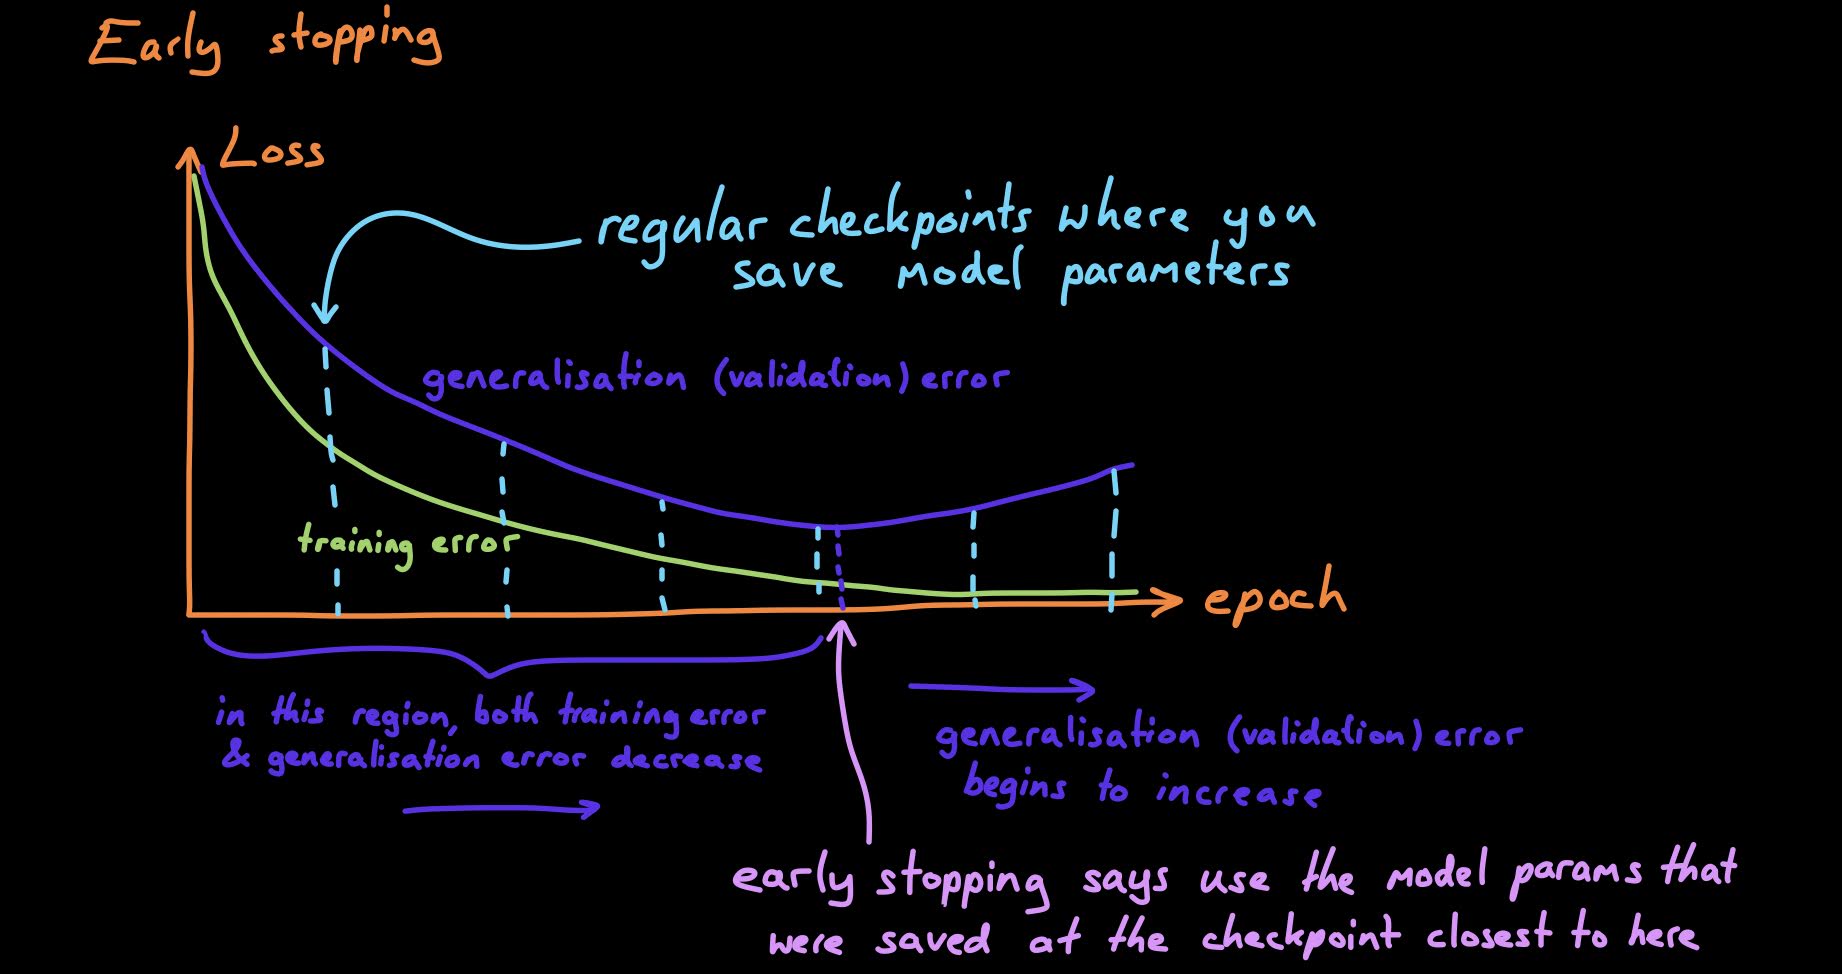 Early stopping
Loss
regular checkpoints where you
save model parameters
generalisation (validation) error
training error
epoch
in this region, both training error
& generalisation error decrease
generalisation (validation) error
begins to increase
early stopping says use the model params that
were saved at the checkpoint closest to here